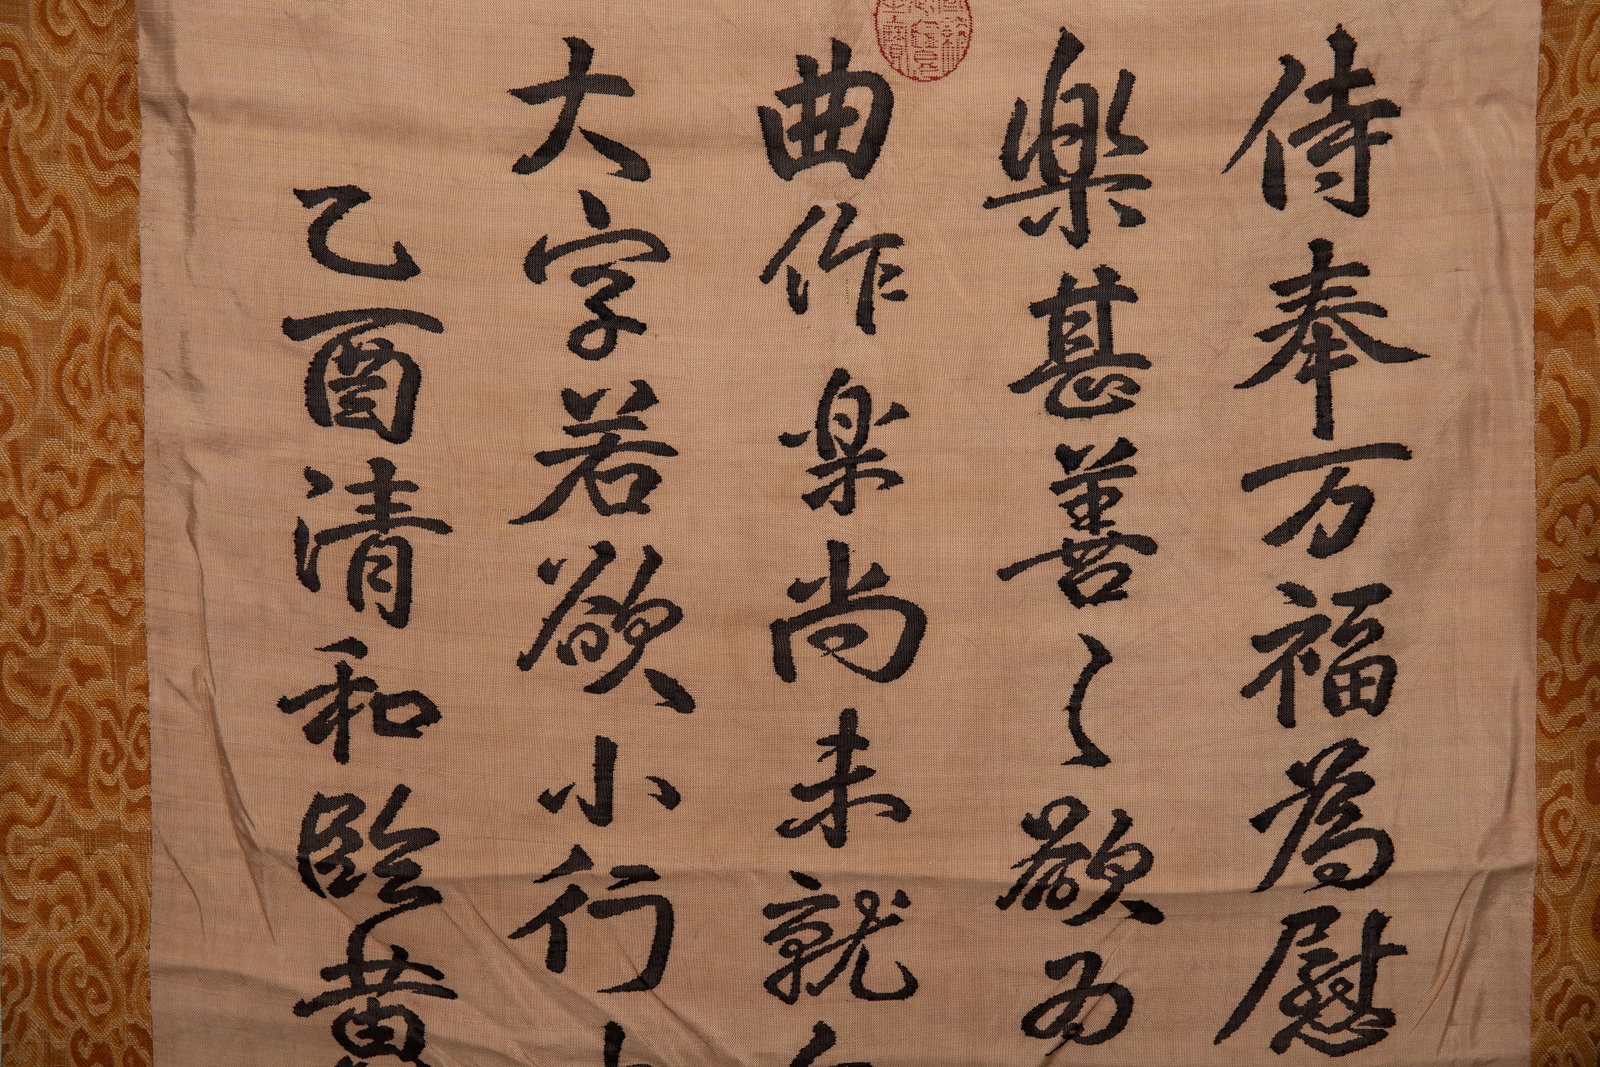 侍奉万福為慰
楽甚善之欲為
曲作楽尚未就
大字若欲小行
乙酉清和臨黄